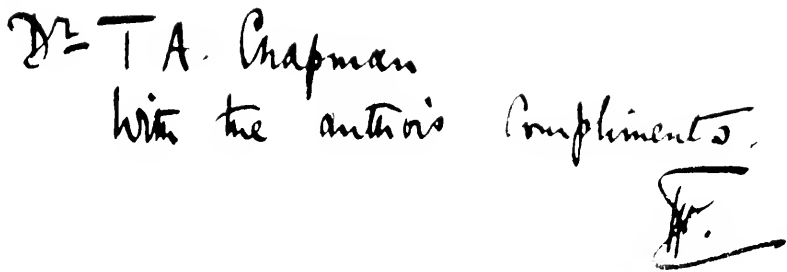 Dr T A. Chapman
with the author's compliments.